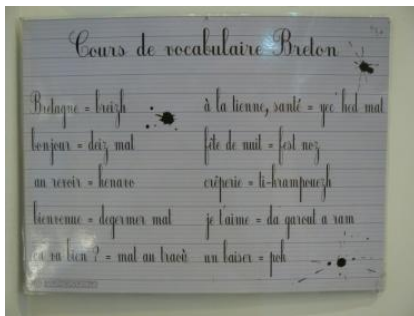 Cours de vocabulaire Breton
Bretagne = breizh
bonjour = deiz mat
au revoir = kenavo
bienvenue = degermer mat
ça va bien ? = mat an traoù
à la tienne, santé = yec'hed mat
fête de nuit = fest noz
crêperie = ti-krampouezh
je t'aime = da garout a ram
un baiser = pok